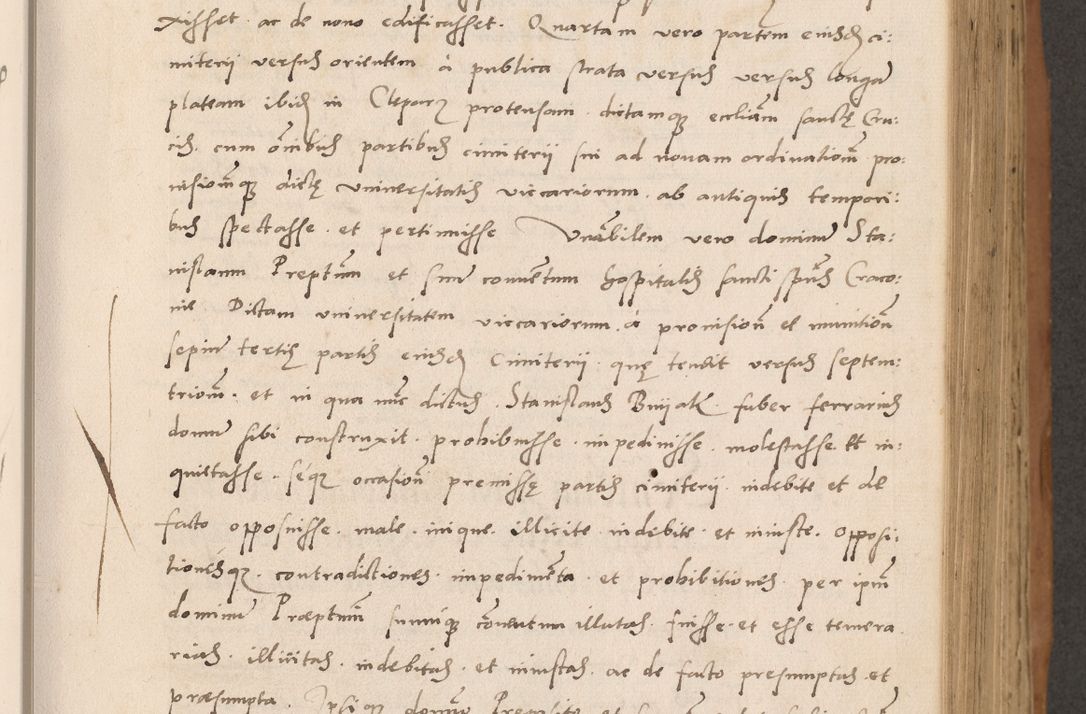 xisset ac de nono edificasset. Quartam vero partem eiusd ci:
miterii versus orientem à publica strata versus versus longā
plateam ibid in Cleparz protensam dictamq eccliām sanctę Cru:
cis. cum oīnibus partibus cimiterii sui ad nouam ordinationem pro:
uisionemq dictę vniuersitatis viccariorum. ab antiquis tempori:
bus spectasse. et pertinuisse Vnābilem vero dominum Sta:
nislaum Preptum et suum conuentum hospitalis sancti spūs Craco:
nie Dictam vniuersitatem viccariorum. à prouisione et munitione
sepium tertię partis eiusd Cimiterii. quę tendit versus septem:
trionem. et in qua nūc dictus. Stanislaus faber ferrarius
domum sibi construxit. prohibuisse. impediuisse. molestasse. Et in:
quietasse. séq occasione premissę partis cimiterii. indebite et de
facto opposuisse. male. inique. illicite indebite. et iniuste. opposi:
tionesq. contradictiones. impedimēta. et prohibitiones. per ipm
dominum Præptum suumq conuentum illatas. fuisse. et esse temera.
rias. illicitas. indebitas. et iniustas. ac de facto presumptas. et
præsumpta. Ipsiq domino